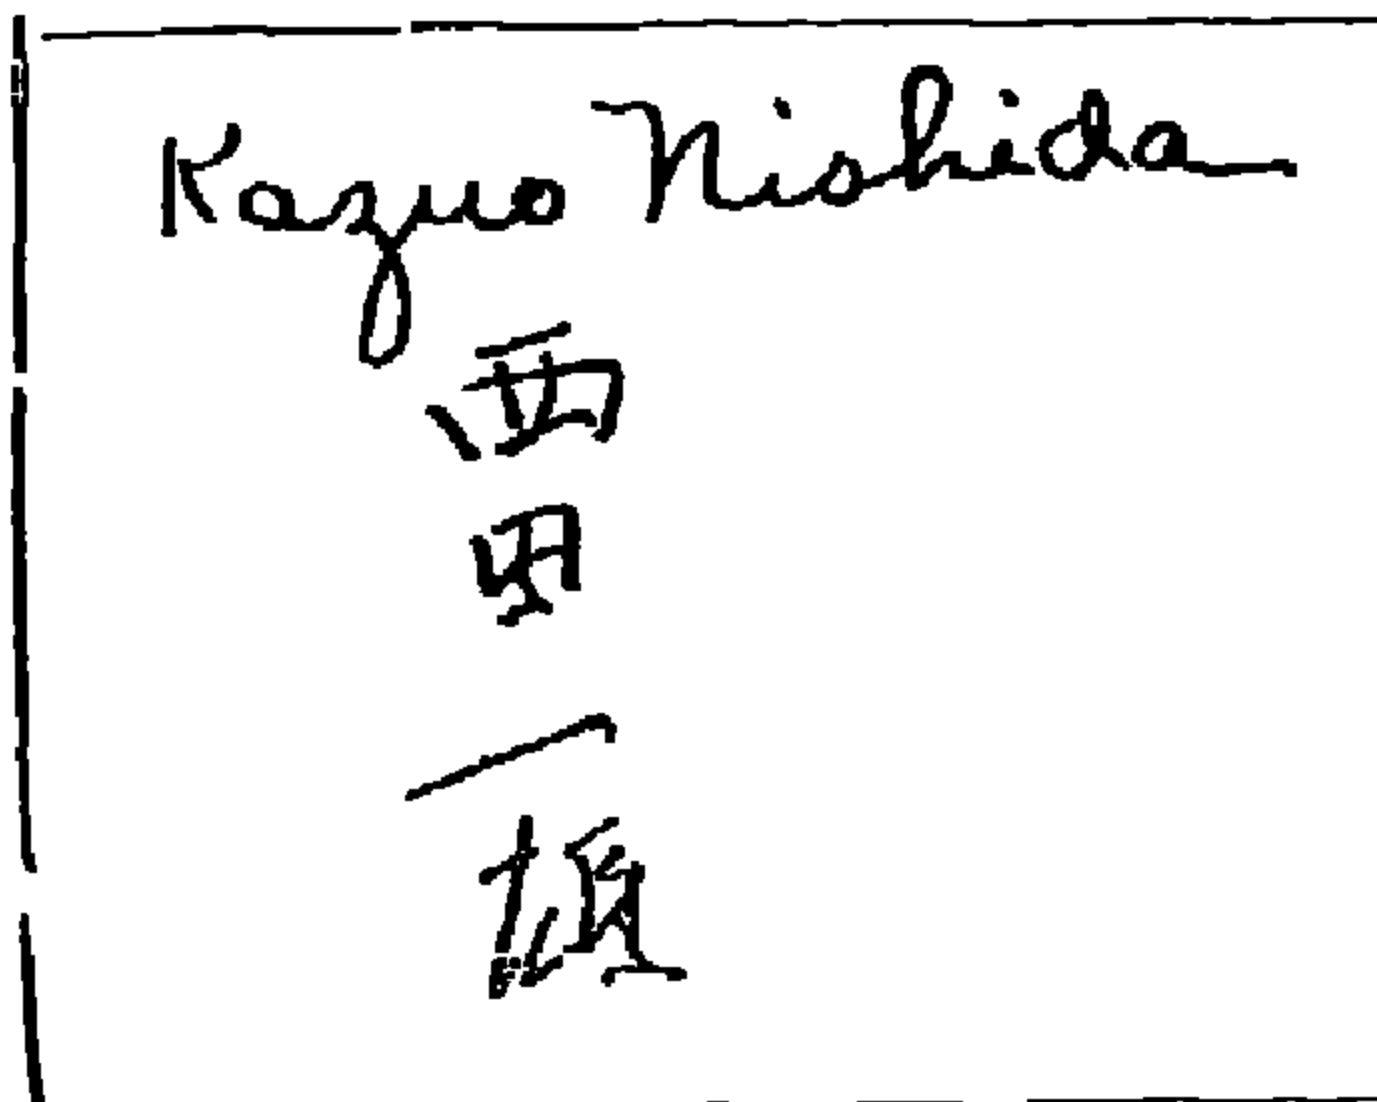 Kazuo Nishida
西
田
一
雄